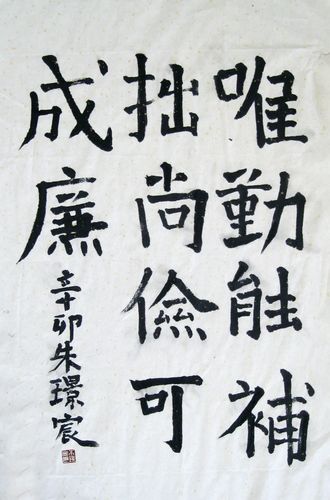 唯勤能補
拙尚儉可
成廉
辛卯朱璟宸